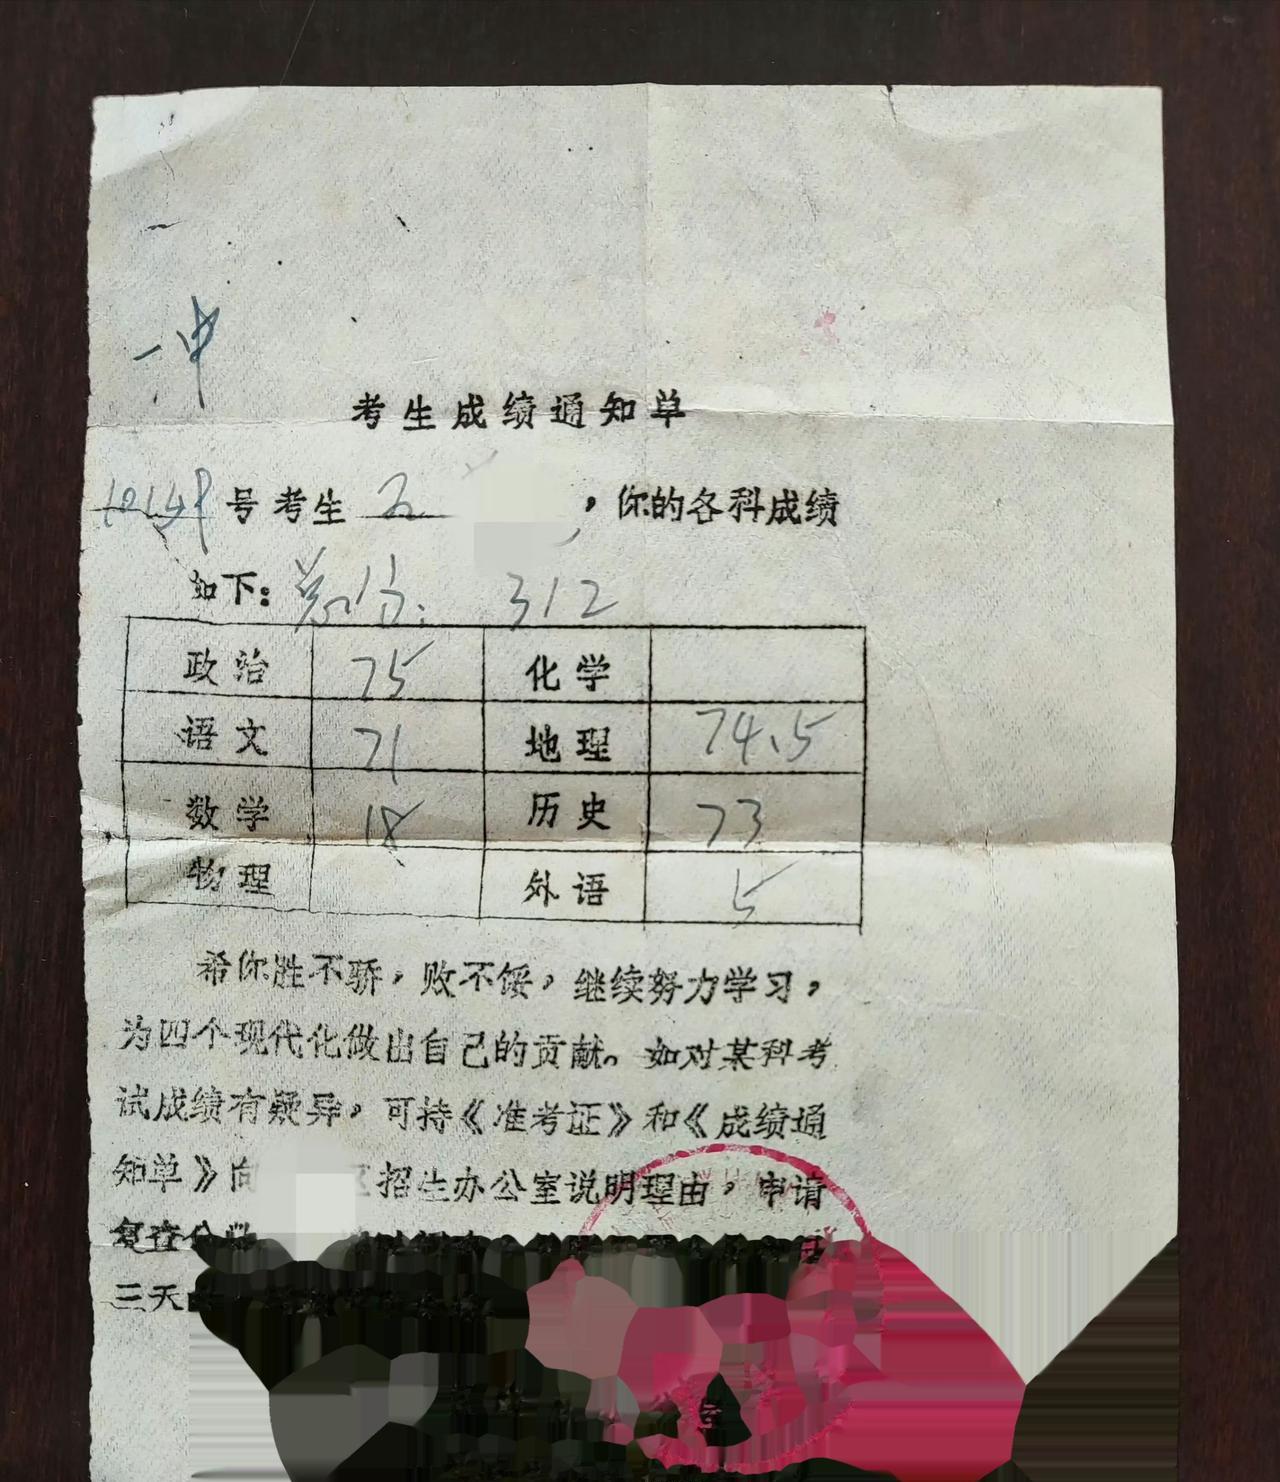 一中
考生成绩通知单
号考生 ，你的各科成绩
如下：总分：312
政治 75 化学
语文 71 地理 74.5
数学 18 历史 73
物理 外语 5
希你胜不骄，败不馁，继续努力学习，
为四个现代化做出自己的贡献。如对某科考
试成绩有疑异，可持《准考证》和《成绩通
知单》向 区招生办公室说明理由，申请
复查分数
三天